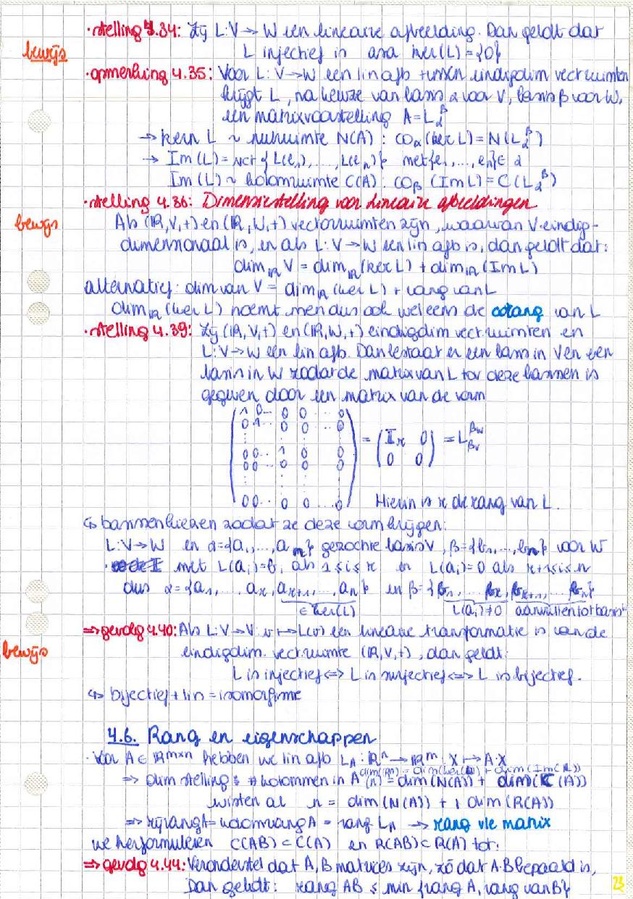 ·stelling 4.34: Zij L: V → W een lineaire afbeelding. Dan geldt dat
bewijs
L injectief is asa ker(L) = {0}
·opmerking 4.35: Voor L: V → W een lin afb tussen eindigdim vectruimten
krijgt L, na keuze van basis α voor V, basis β voor W,
een matrixvoorstelling A = L_α^β
→ kern L ~ nulruimte N(A): co_α(ker L) = N(L_α^β)
→ Im(L) = vct{L(e₁), ..., L(eₙ)} met {e₁, ..., eₙ} ∈ α
Im(L) ~ kolomruimte C(A): co_β(Im L) = C(L_α^β)
·stelling 4.36: Dimensiestelling voor lineaire afbeeldingen
bewijs
Als (ℝ,V,+) en (ℝ,W,+) vectorruimten zijn, waarvan V eindig-
dimensionaal is, en als L: V → W een lin afb is, dan geldt dat:
dim_ℝ V = dim_ℝ(ker L) + dim_ℝ(Im L)
alternatief: dim van V = dim_ℝ(ker L) + rang van L
dim_ℝ(ker L) noemt men dus ook wel eens de corang van L
·stelling 4.39: Zij (ℝ,V,+) en (ℝ,W,+) eindigdim vectruimten en
L: V → W een lin afb. Dan bestaat er een basis in V en een
basis in W zodat de matrix van L tov deze bassen is
gegeven door een matrix van de vorm
(1 0 ... 0 0 ... 0
0 1 ... 0 0 ... 0
0 0 ... 1 0 ... 0
0 0 ... 0 0 ... 0
0 0 ... 0 0 ... 0) = (I_r 0
0 0) = L_{β_V}^{β_W}
Hierin is r de rang van L.
↳ bassen kiezen zodat ze deze vorm krijgen:
L: V → W en α = {a₁, ..., a } gezochte basis V, β = {b₁, ..., b } voor W
met L(aᵢ) = bᵢ als 1 ≤ i ≤ r en L(aᵢ) = 0 als r+1 ≤ i ≤ n
dus α = {a₁, ... a_r, a_{r+1}, ..., aₙ} en β = {b₁, ... b_r, b_{r+1}, ... b }
∈ ker(L) L(aᵢ) ≠ 0 aanvullen tot basis
⇒ gevolg 4.40: Als L: V → V: v ↦ L(v) een lineaire transformatie is van de
bewijs
eindigdim. vectruimte (ℝ,V,+), dan geldt:
L is injectief ⟺ L is surjectief ⟺ L is bijectief.
↳ bijectief + lin = isomorfisme
4.6. Rang en eigenschappen
· Voor A ∈ ℝ^{m×n} hebben we lin afb L_A: ℝⁿ → ℝᵐ: X ↦ A·X
dim(ℝⁿ) = dim(ker(L)) + dim(Im(L))
⇒ dim stelling: # kolommen in A (n) = dim(N(A)) + dim(C(A))
wisten al n = dim(N(A)) + dim(R(A))
⇒ rijrang A = kolomrang A = rang L_A → rang v/e matrix
we herformuleren C(AB) ⊂ C(A) en R(AB) ⊂ R(A) tot:
⇒ gevolg 4.44: Veronderstel dat A, B matrices zijn, zó dat A·B bepaald is,
Dan geldt: rang AB ≤ min {rang A, rang van B}
23